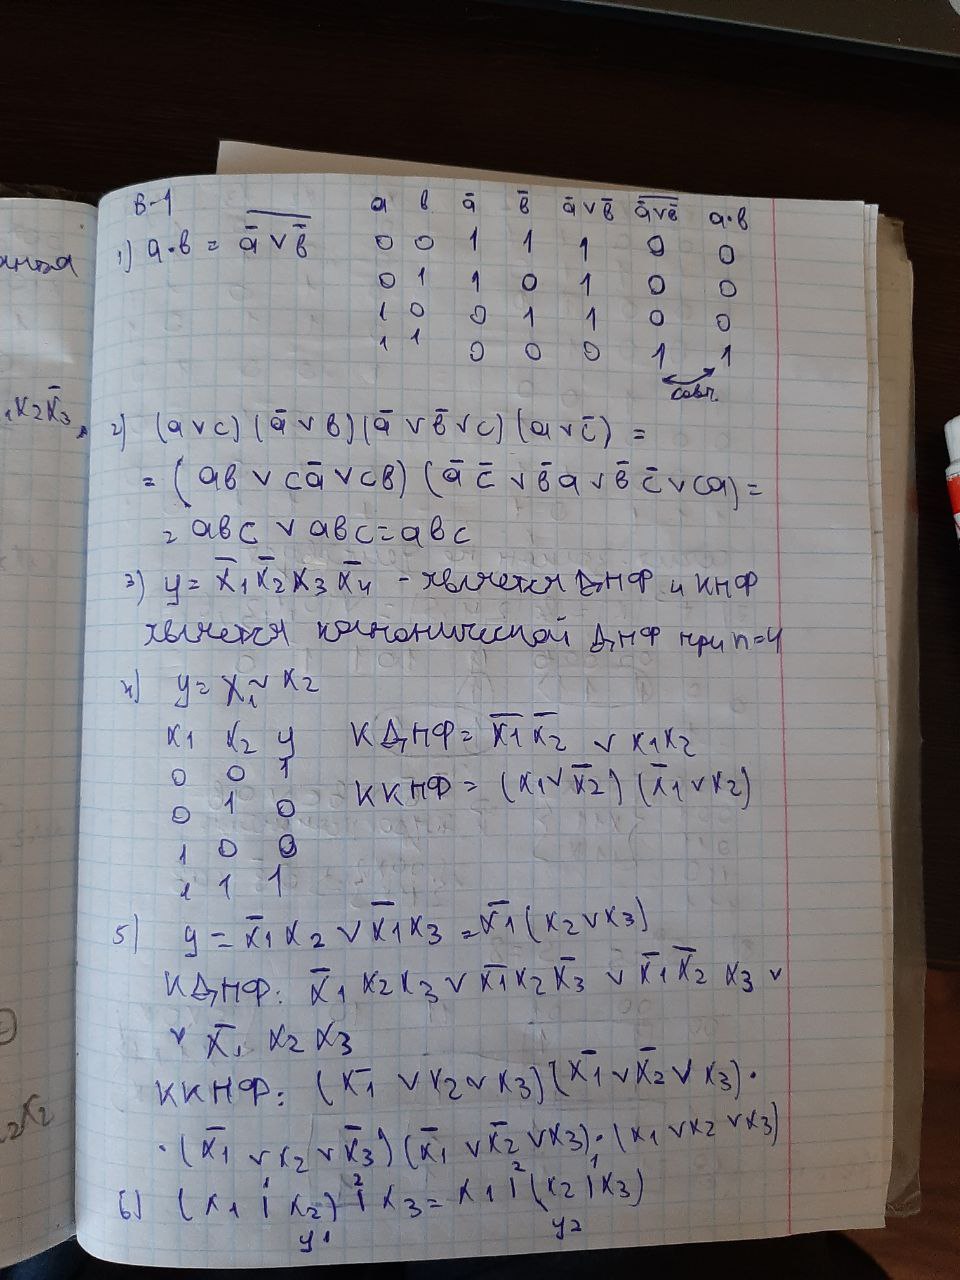 анта
x̄₁x₂x̄₃
₂x₂
В-1
1) a·b = \overline{ā ∨ b̄}
a b ā b̄ ā∨b̄ \overline{ā∨b̄} a·b
0 0 1 1 1 0 0
0 1 1 0 1 0 0
1 0 0 1 1 0 0
1 1 0 0 0 1 1
совп.
2) (a∨c)(ā∨b)(ā∨b̄∨c)(a∨c̄) =
= (ab∨cā∨cb)(āc̄∨b̄a∨b̄c̄∨ca) =
= abc∨abc=abc
3) y= x̄₁x̄₂x₃x̄₄ - является ДНФ и КНФ
является канонической ДНФ при n=4
4) y= x₁~x₂
x₁ x₂ y
0 0 1
0 1 0
1 0 0
1 1 1
КДНФ= x̄₁x̄₂ ∨ x₁x₂
ККНФ = (x₁∨x̄₂)(x̄₁∨x₂)
5) y = x̄₁x₂∨x̄₁x₃ = x̄₁(x₂∨x₃)
КДНФ: x̄₁x₂x₃∨x̄₁x₂x̄₃ ∨ x̄₁x̄₂x₃∨
∨ x̄₁x₂x₃
ККНФ: (x̄₁∨x₂∨x₃)(x̄₁∨x̄₂∨x₃)·
·(x̄₁∨x₂∨x̄₃)(x̄₁∨x̄₂∨x₃)·(x₁∨x₂∨x₃)
6) (x₁ |¹ x₂) |² x₃= x₁ |² (x₂ |¹ x₃)
y₁ y₂